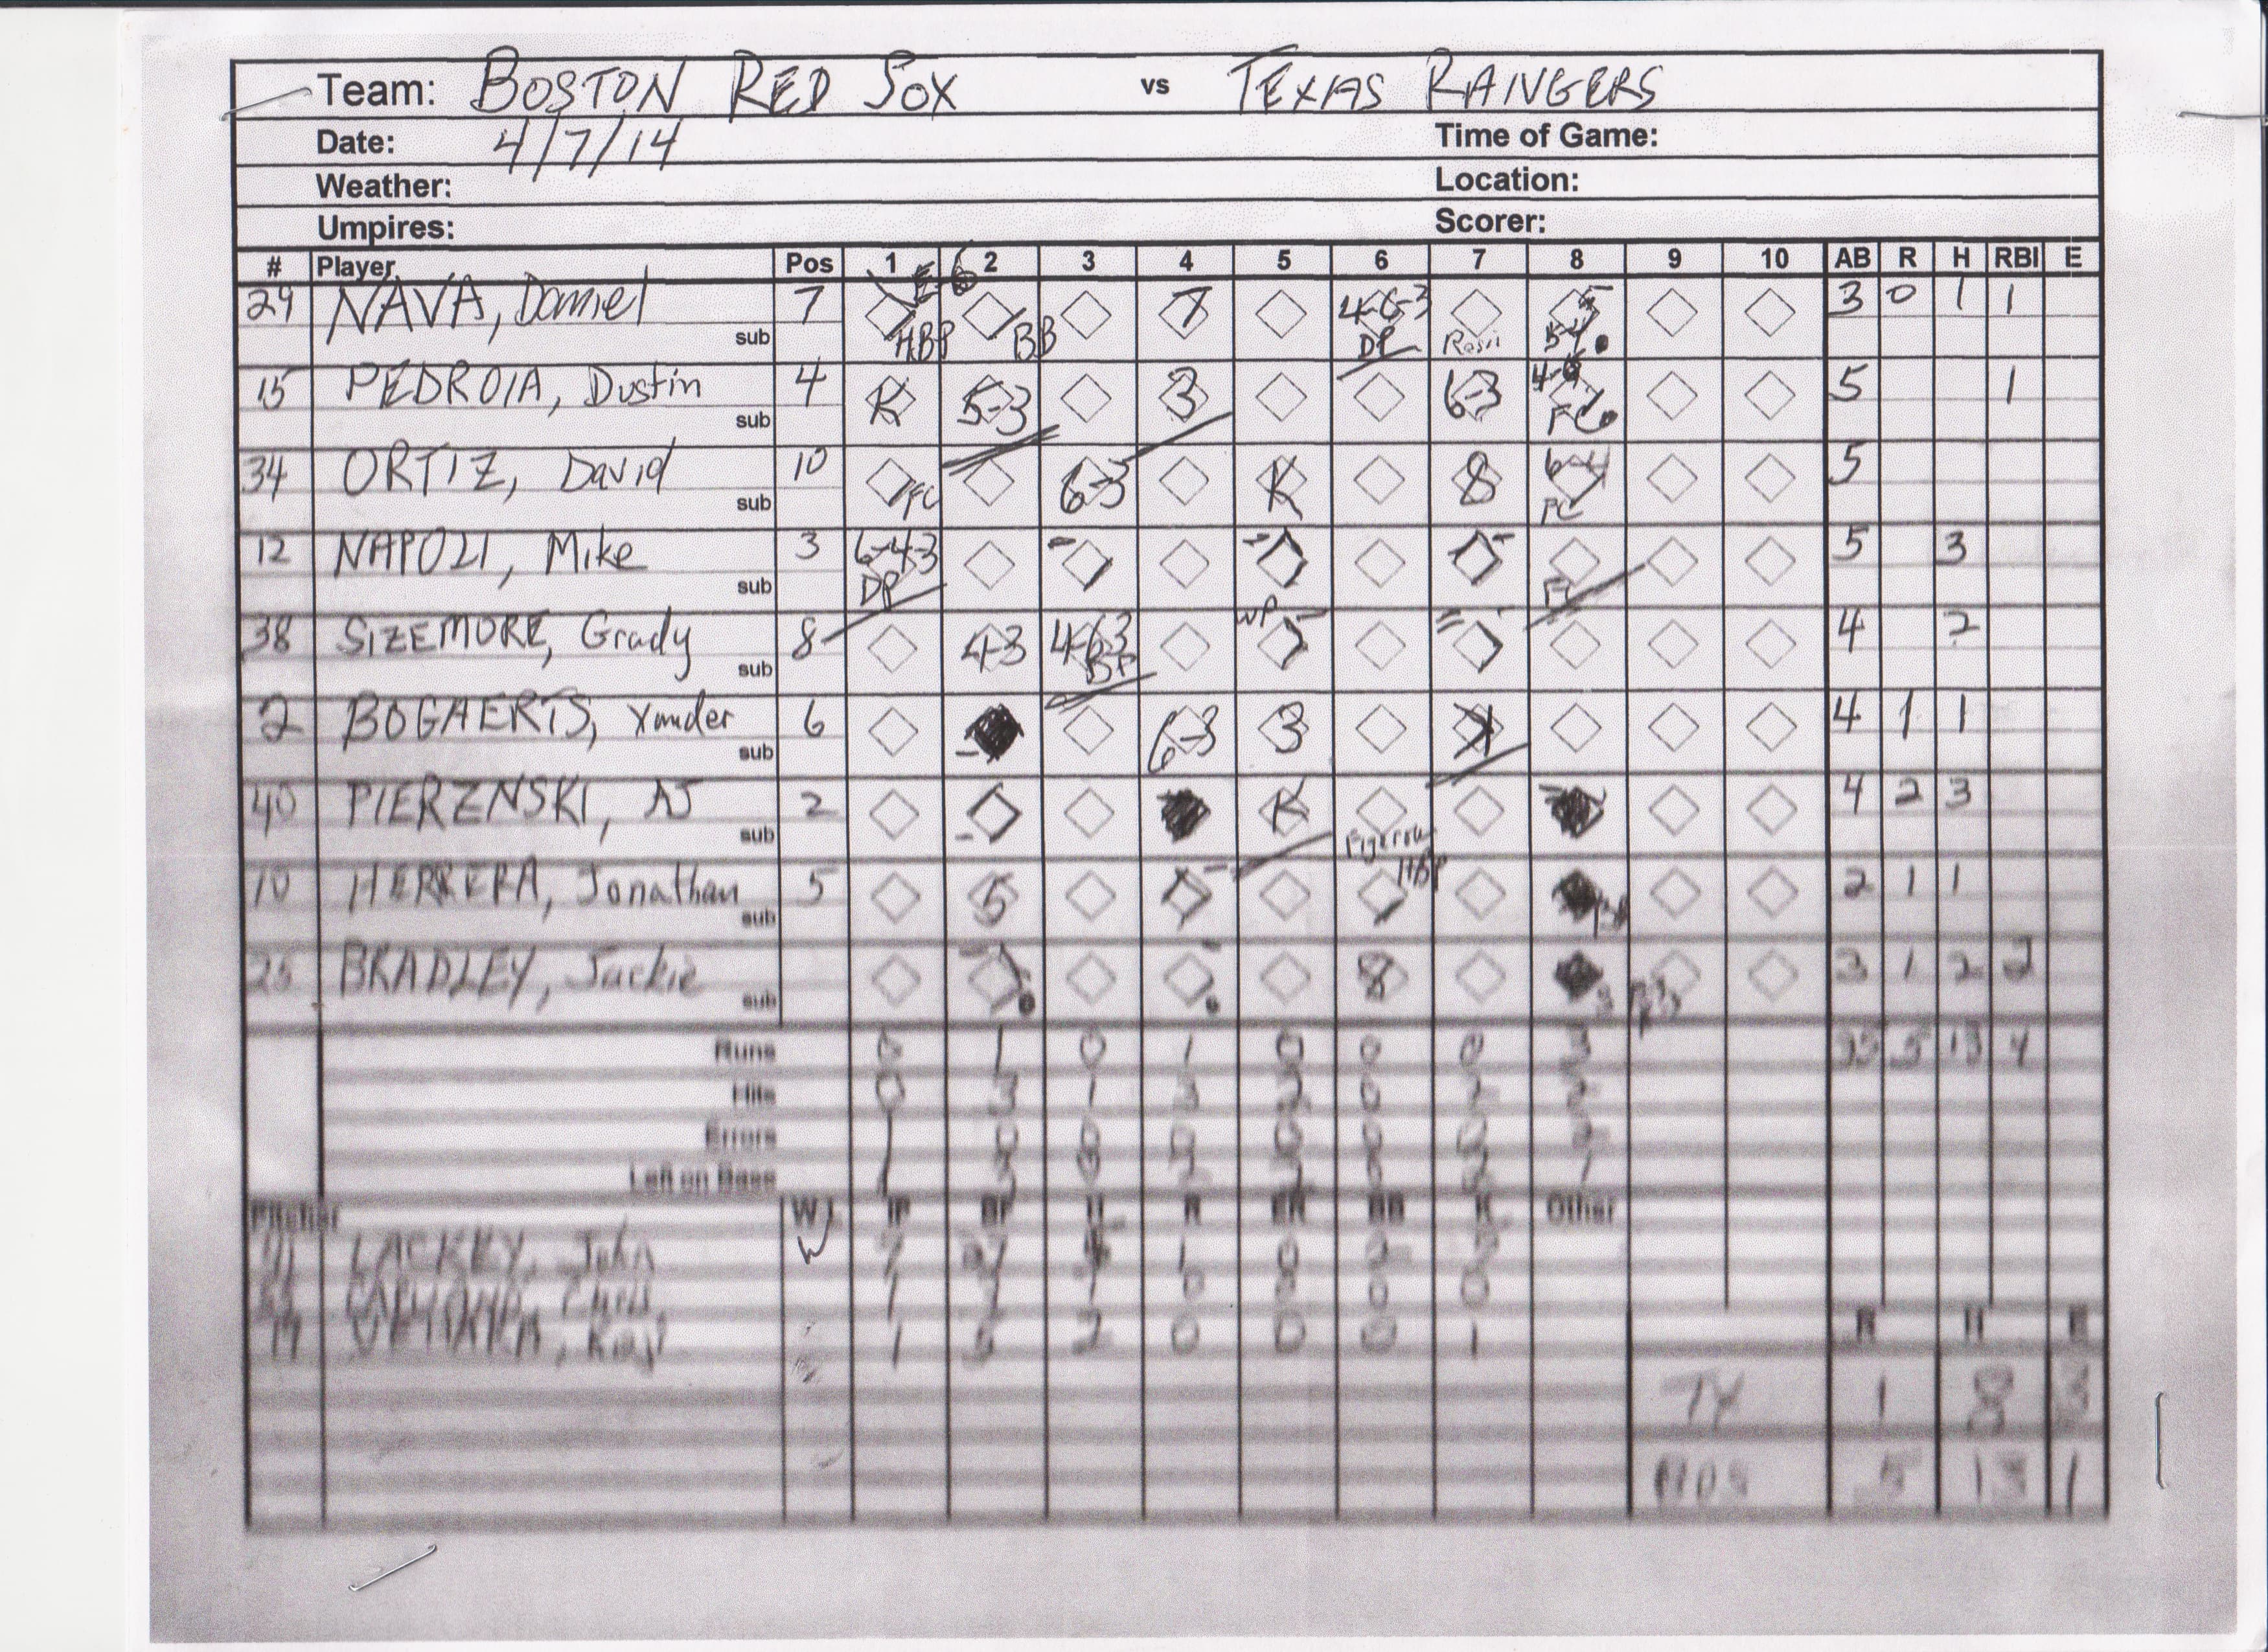 Team: BOSTON RED SOX vs TEXAS RAINGERS
Date: 4/7/14 Time of Game:
Weather: Location:
Umpires: Scorer:
# Player Pos 1 2 3 4 5 6 7 8 9 10 AB R H RBI E
29 NAVA, Daniel sub 7 HBP BB 7 4-6-3 DP 3 0 1 1
15 PEDROIA, Dustin sub 4 K 5-3 3 6-3 FC 5 1
34 ORTIZ, David sub 10 FC 6-3 K 8 6-4 FC 5
12 NAPOLI, Mike sub 3 6-4-3 DP FC 5 3
38 SIZEMORE, Grady sub 8 4-3 4-6-3 DP WP 4 2
2 BOGAERTS, Xander sub 6 6-3 3 K 4 1 1
40 PIERZNSKI, AJ sub 2 K 4 2 3
10 HERRERA, Jonathan sub 5 5 HBP 2 1 1
25 BRADLEY, Jackie sub 8 3 1 2 2
Runs 0 1 0 1 0 0 0 3 35 5 13 4
Hits 0 3 1 3 2 0 2 2
Errors 1 0 0 0 0 0 0
Left on Base
Pitcher W/L IP BF H R ER BB K Other
LACKEY, John W 7 1 0 2
1 1 0 0 0
1 5 2 0 0 0 1
R H E
TX 1 8 3
BOS 5 13 1